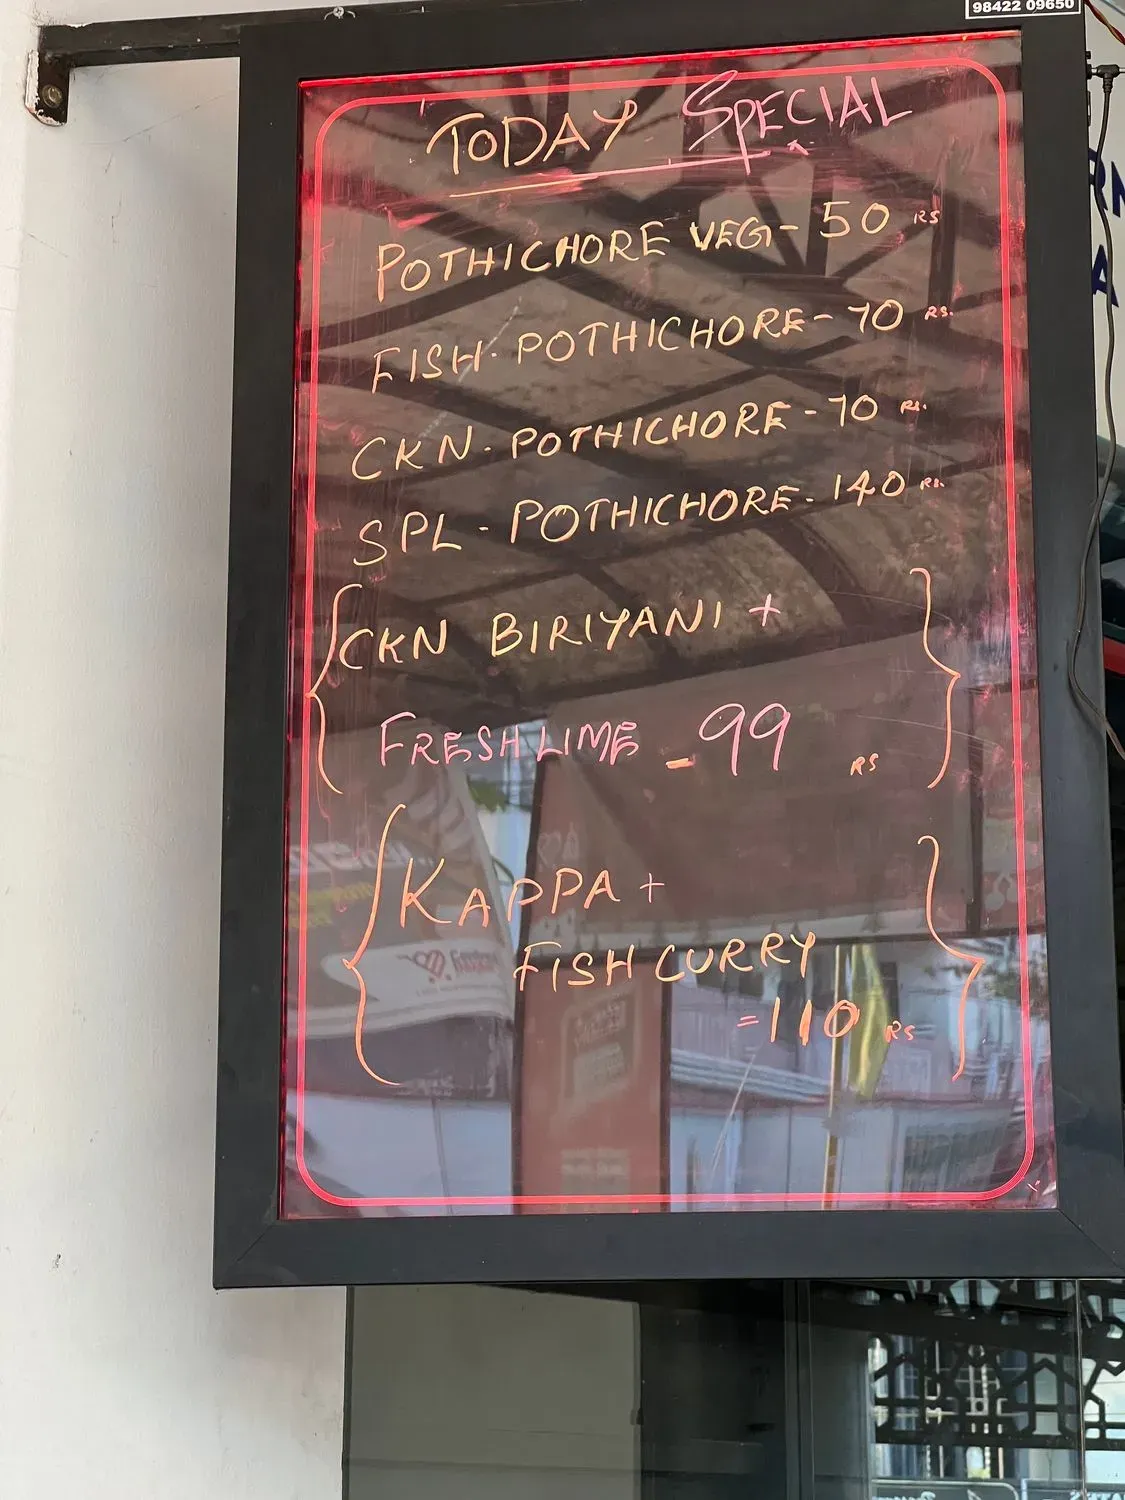 98422 09650
TODAY SPECIAL
POTHICHORE VEG - 50 RS
FISH. POTHICHORE - 70 RS.
CKN. POTHICHORE - 70 RS.
SPL - POTHICHORE - 140 RS.
CKN BIRIYANI +
FRESH LIME - 99 RS
KAPPA +
FISH CURRY
= 110 RS